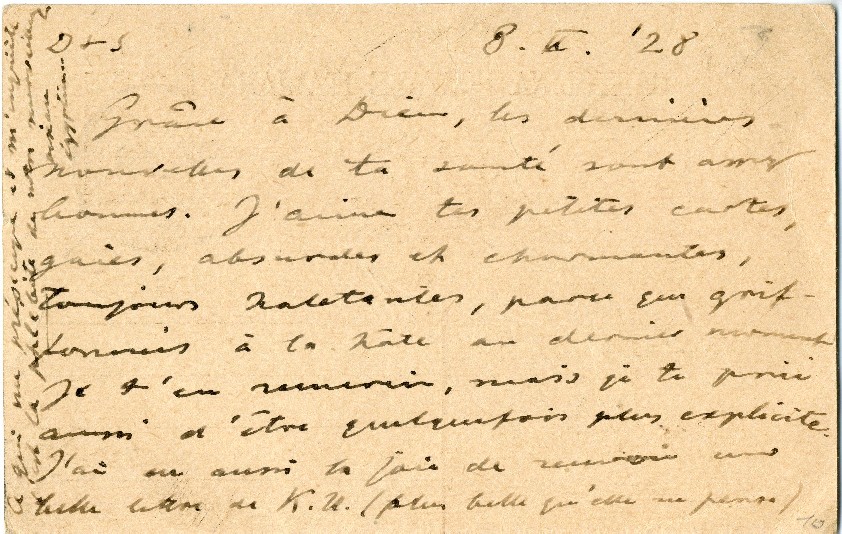 D+S 8.II.'28
Grâce à Dieu, les dernières
nouvelles de ta santé sont assez
bonnes. J'aime tes petites cartes,
gaies, absurdes et charmantes,
toujours haletantes, parce que grif-
fonnées à la hâte au dernier moment
Je t'en remercie, mais je te prie
aussi d'être quelquefois plus explicite.
J'ai eu aussi la joie de recevoir une
belle lettre de K.U. (plus belle qu'elle ne pense)
Ce qui me préoccupe et m'inquiète
c'est la
10